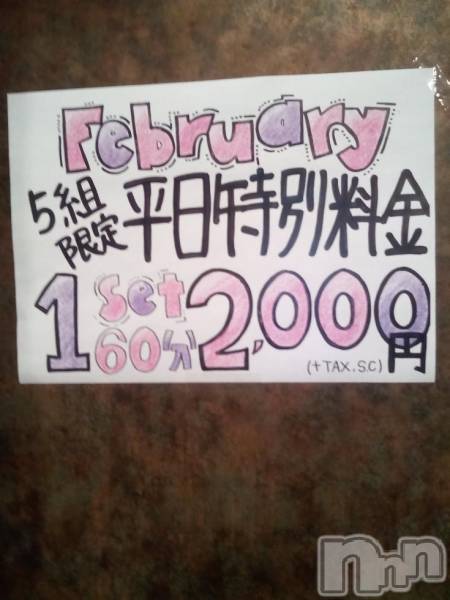 February
5組限定 平日特別料金
1 Set 60分 2,000円
(+TAX.S.C)
nnn